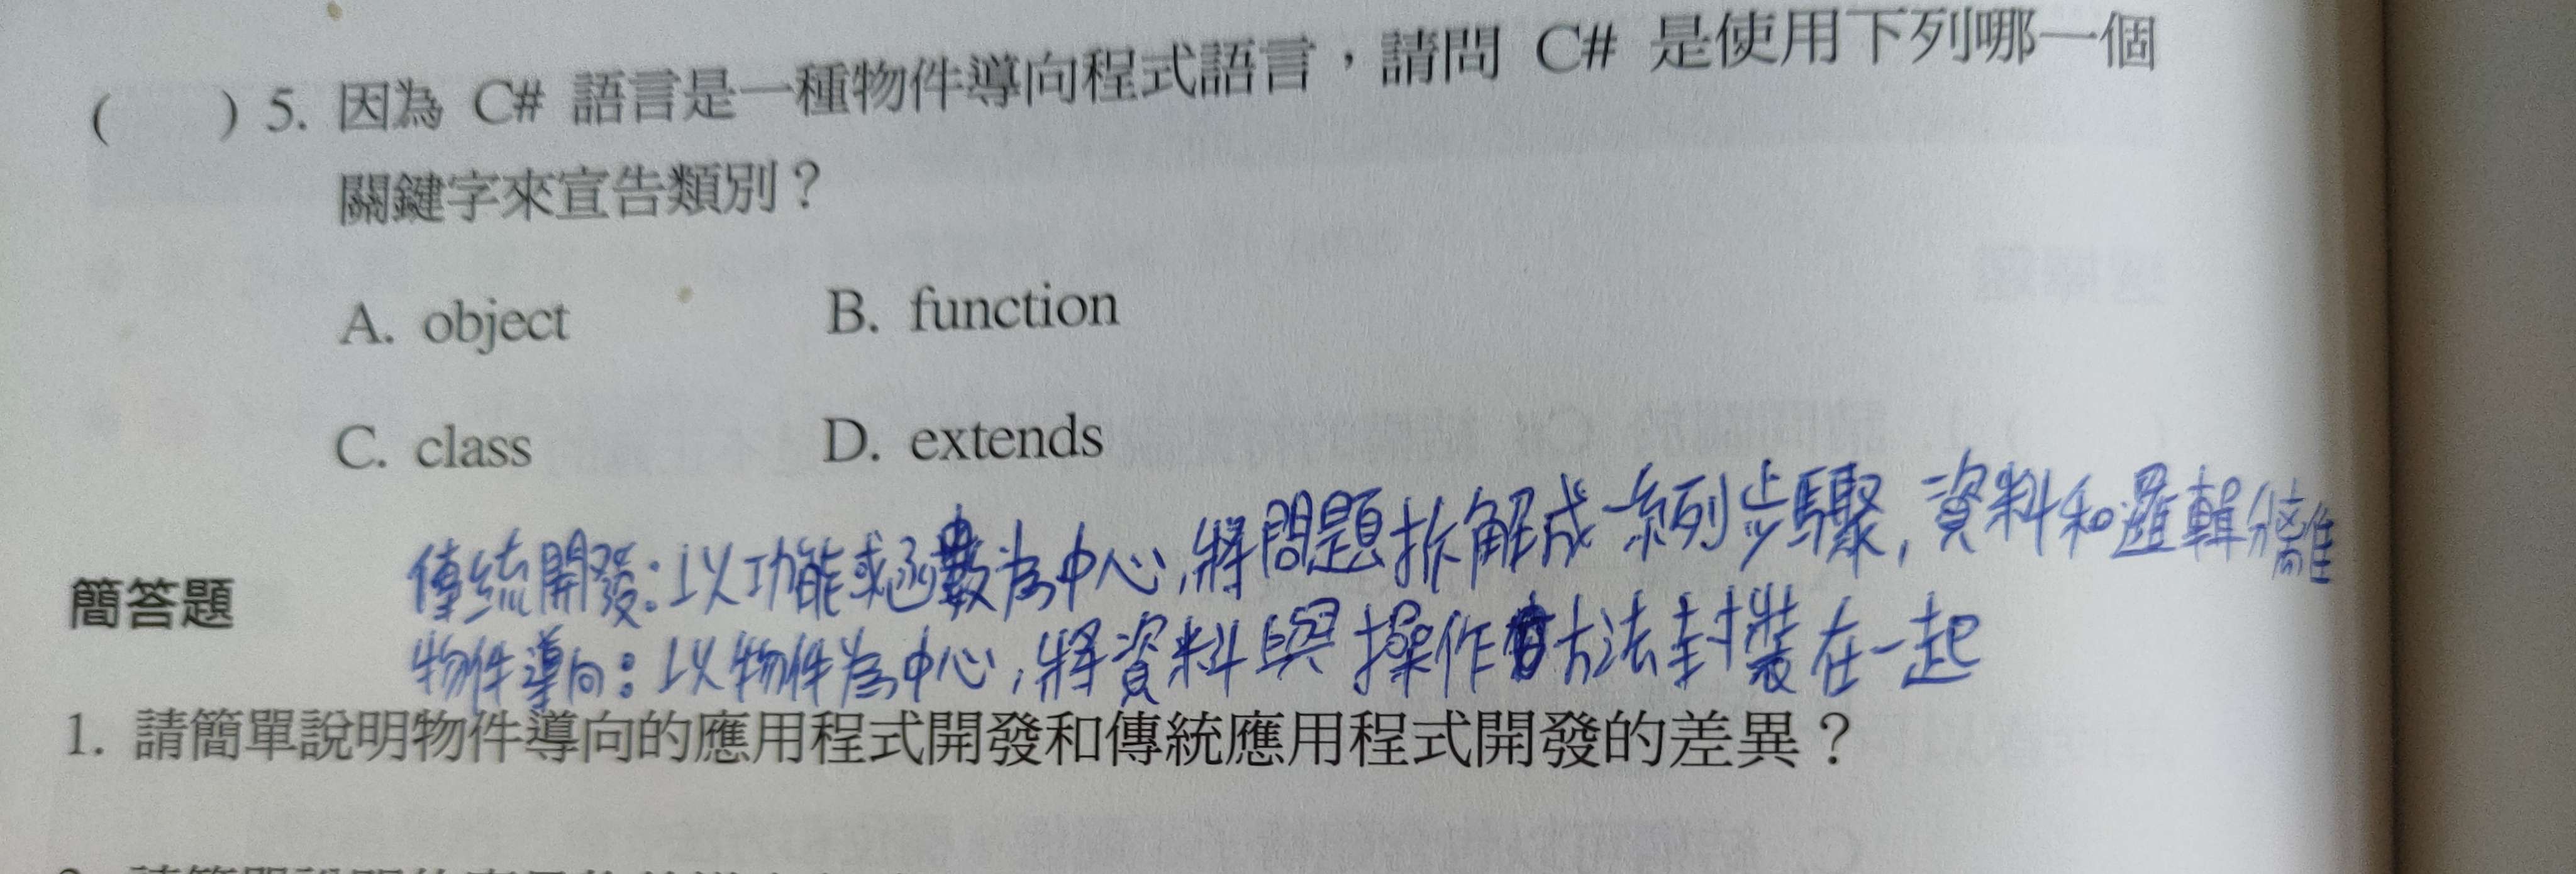 ( ) 5. 因為 C# 語言是一種物件導向程式語言，請問 C# 是使用下列哪一個
關鍵字來宣告類別？
A. object B. function
C. class D. extends
傳統開發：以功能或函數為中心，將問題拆解成一系列步驟，資料和邏輯分離
簡答題
物件導向：以物件為中心，將資料與操作方法封裝在一起
1. 請簡單說明物件導向的應用程式開發和傳統應用程式開發的差異？